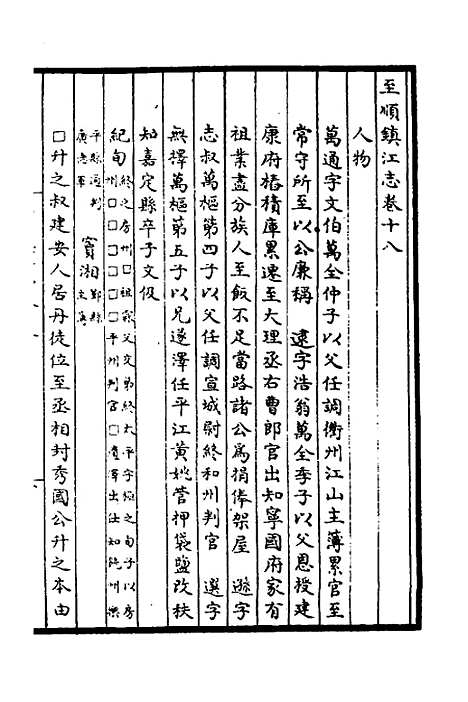 至順鎮江志卷十八
人物
萬適字文伯萬全仲子以父任調衢州江山主薄累官至
常守所至以公廉稱　逮字浩翁萬全季子以父恩授建
康府樁積庫累遷至大理丞右曹郎官出知寧國府家有
祖業盡分族人至飯不足當路諸公為捐俸架屋　遜字
志叔萬樞第四子以父任調宣城尉終和州判官　選字
無擇萬樞第五子以兄遂澤任平江黃姚管押袋鹽改秩
知嘉定縣卒子文伋
紀旬
終之房州□祖霖父交弟終太平字極之旬子以房
州□□□□□□平州判官□壇澤出仕知饒州樂
平縣通判
廣德軍
竇湘
鄞縣
主簿
□升之叔建安人居丹徒位至丞相封秀國公升之本由